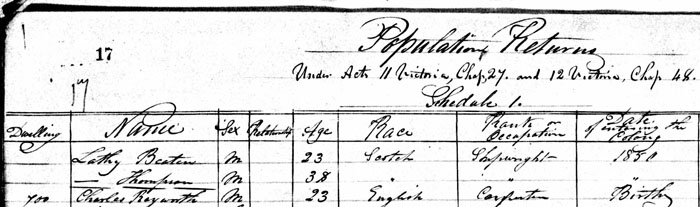 17
Population Returns
Under Acts 11 Victoria, Chap. 27. and 12 Victoria, Chap. 48.
Schedule 1.
Dwelling Name Sex Relationship Age Race Rank or Occupation Date of entering the Colony
Lathy Beaten M 23 Scotch Shipwright 1850
— Thompson M 38
700 Charles Rexworth M 23 English Carpenter Birth